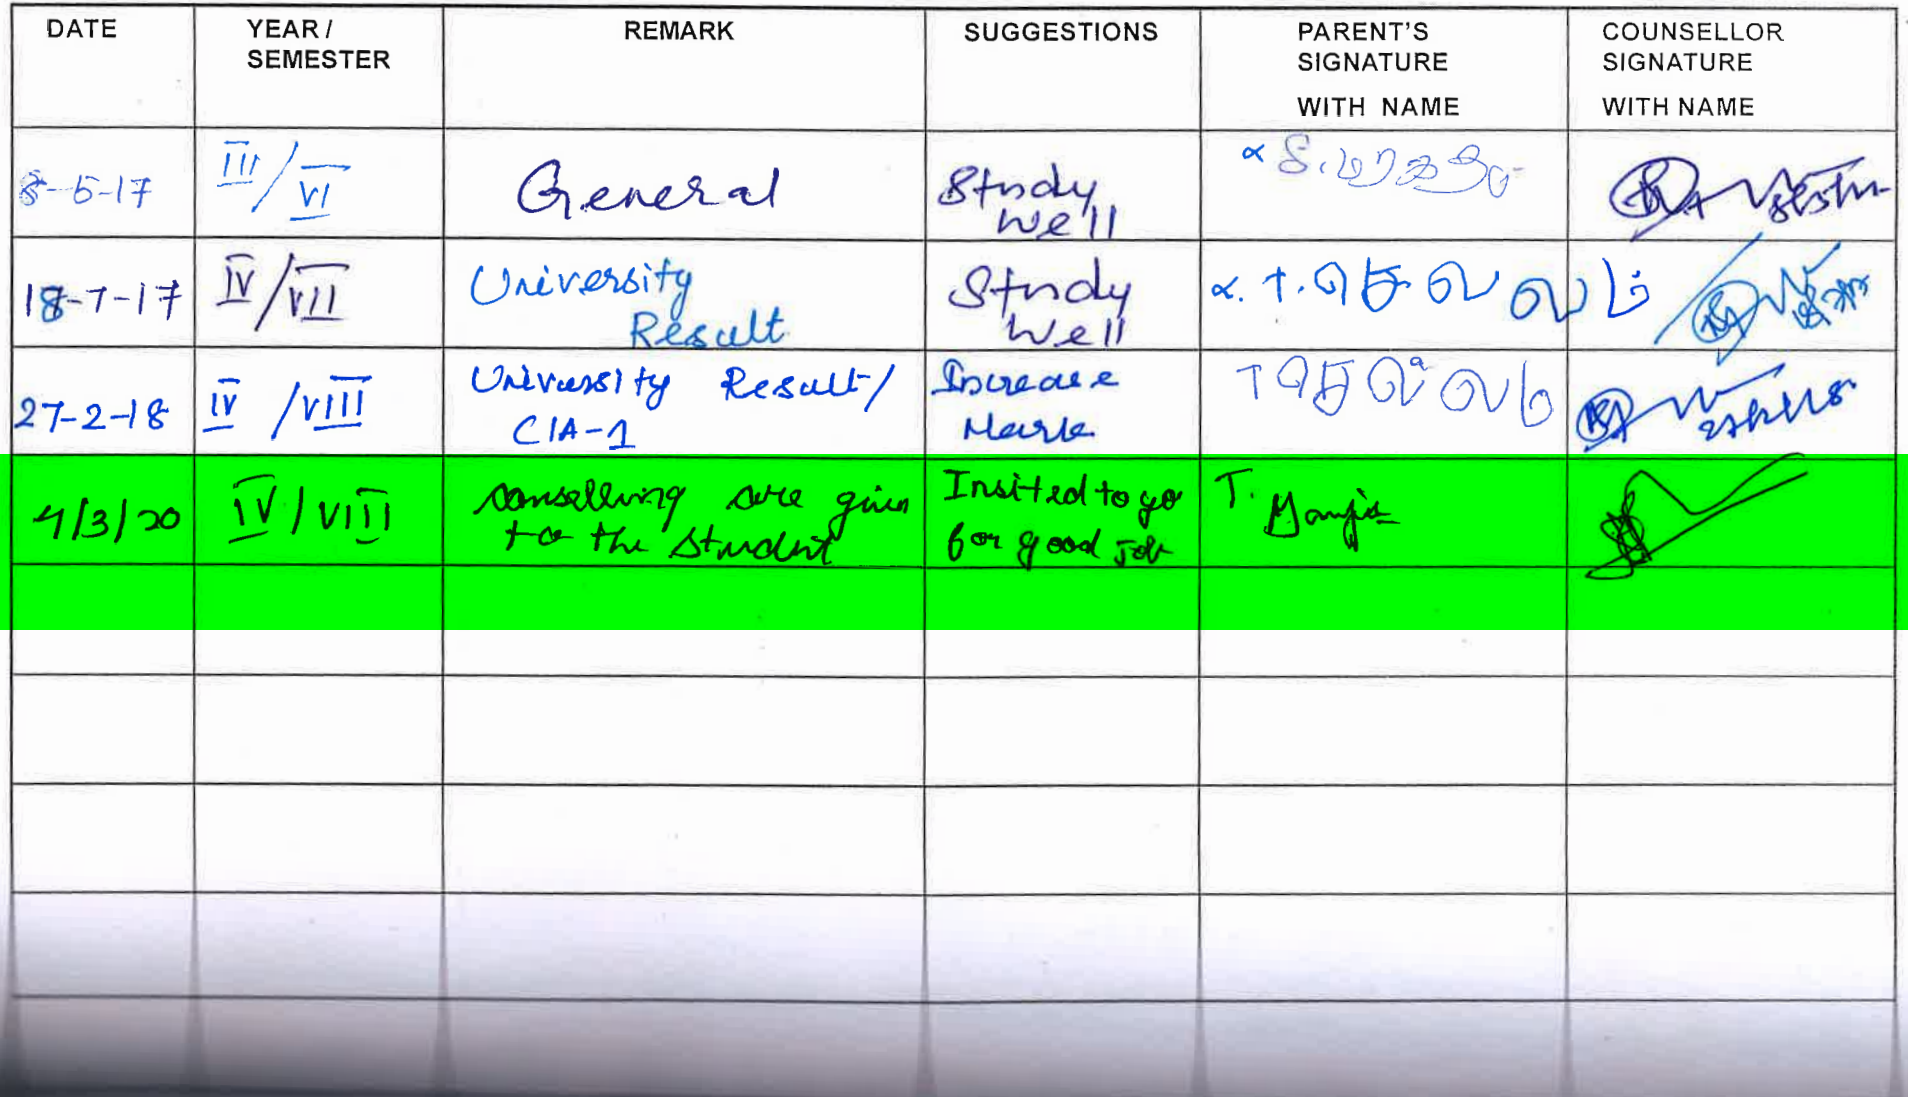 DATE YEAR / SEMESTER REMARK SUGGESTIONS PARENT'S SIGNATURE WITH NAME COUNSELLOR SIGNATURE WITH NAME
8-5-17 III / VI General Study Well
18-7-17 IV / VII University Result Study Well த. செல்லம்
27-2-18 IV / VIII University Result / CIA-1 Increase Mark
4/3/20 IV / VIII counselling are given to the student Insited to go for good Job T.